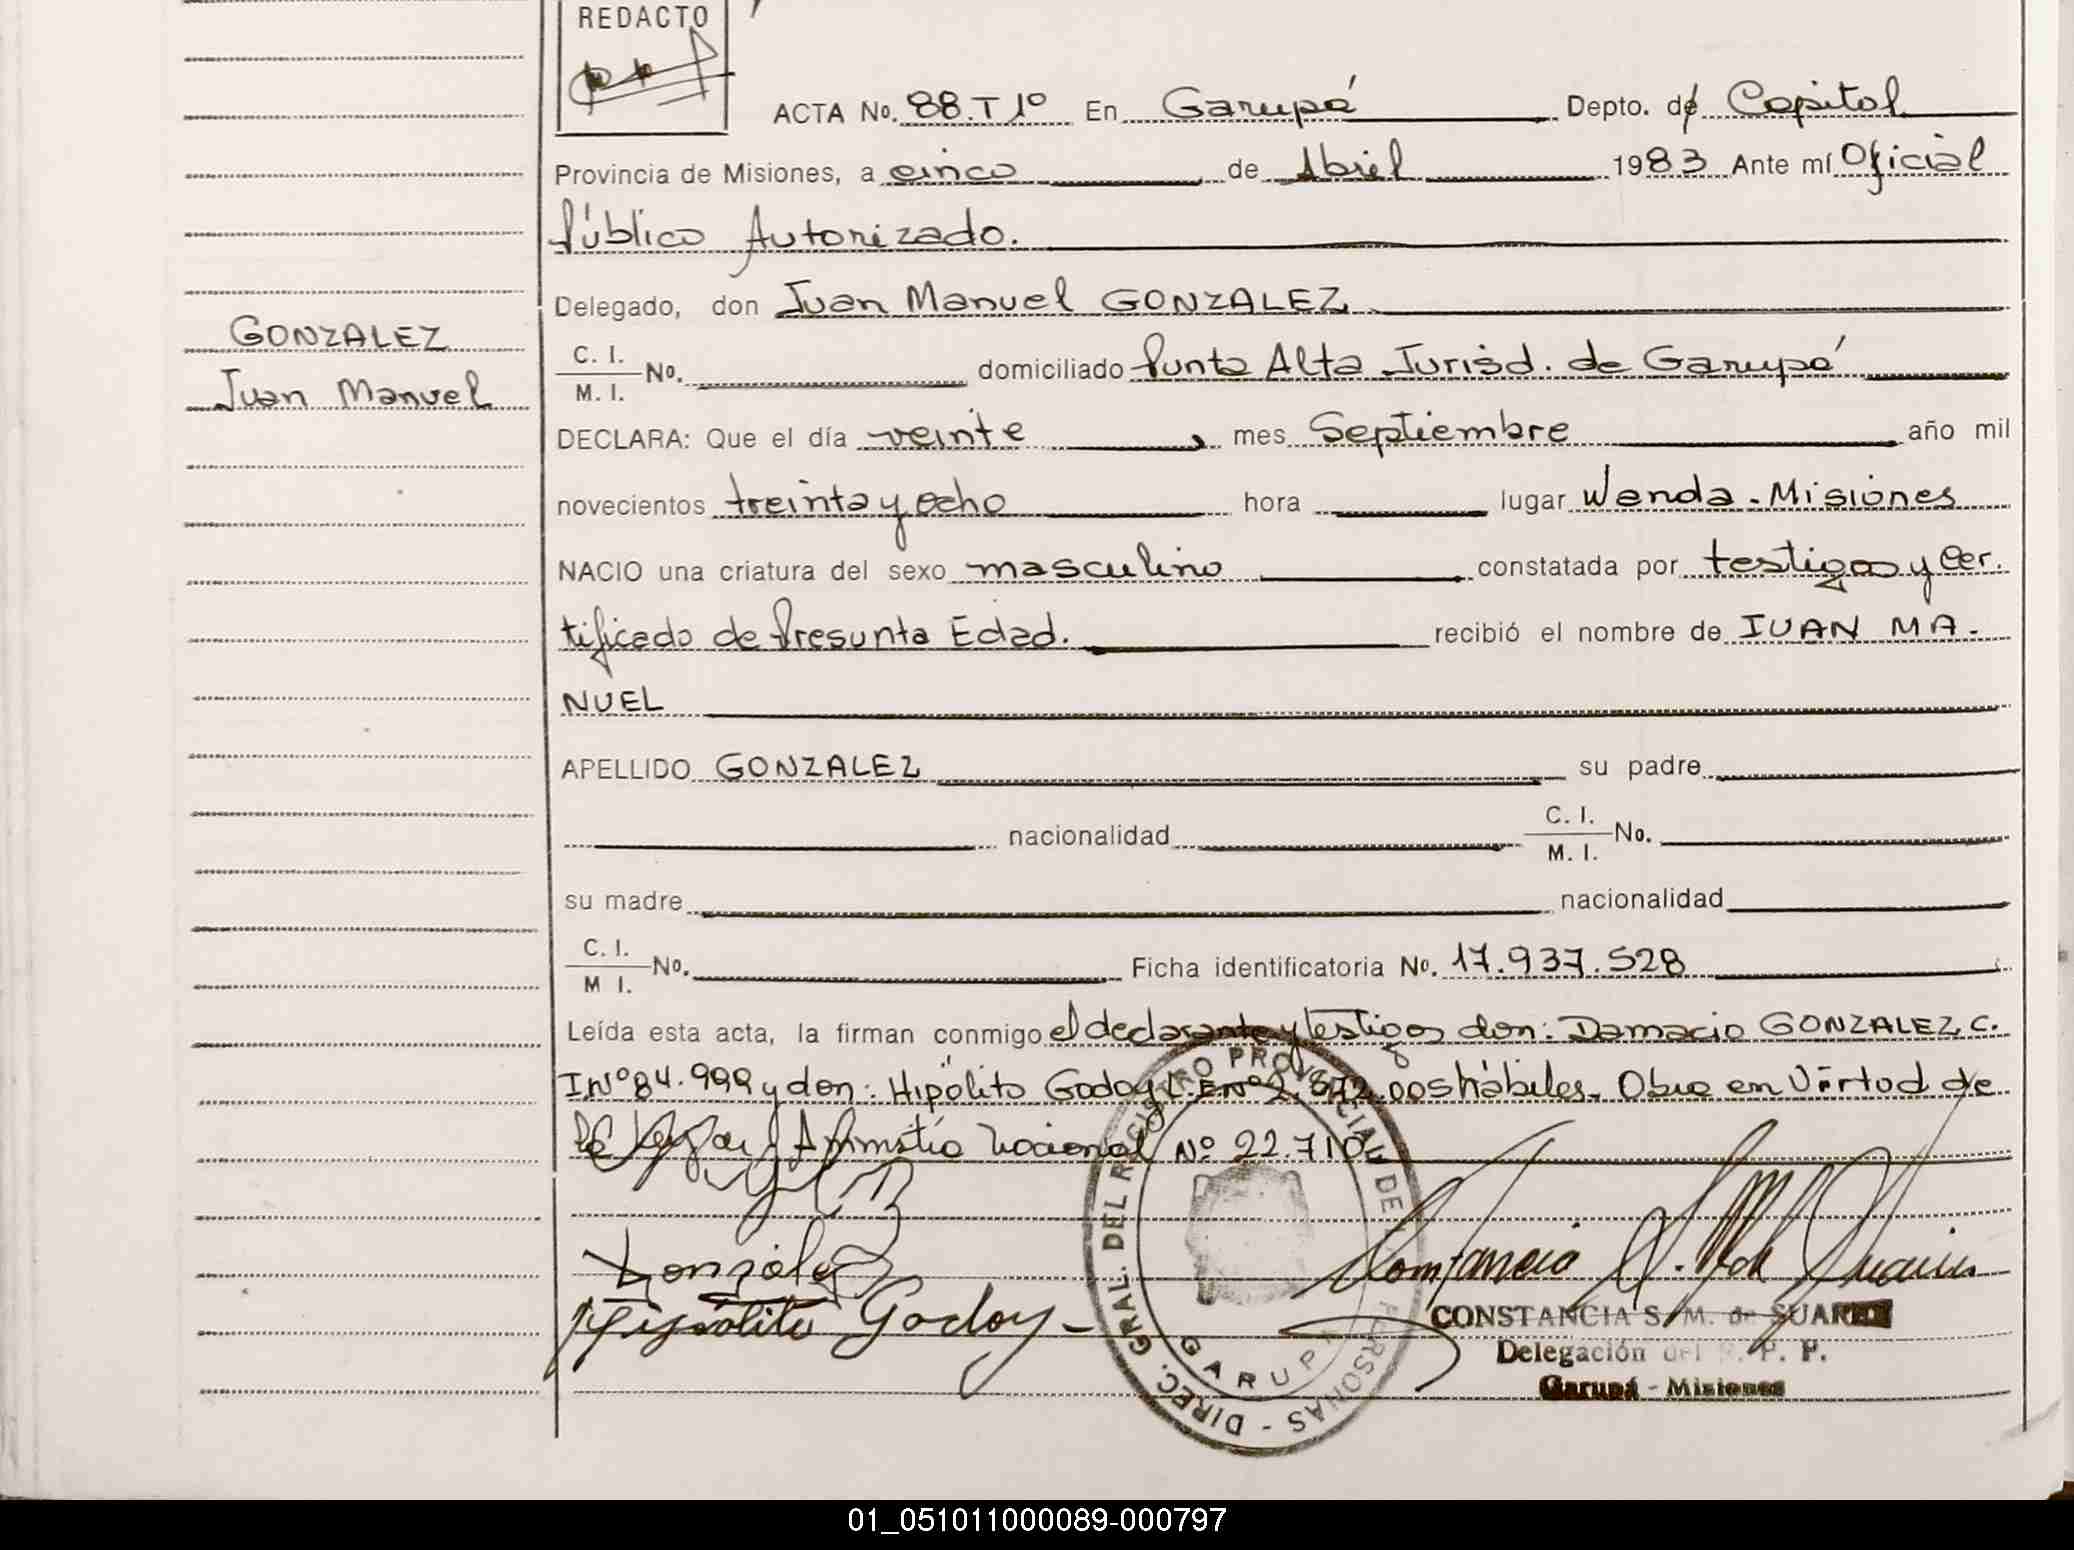 REDACTO
ACTA No. 88.T1º En Garupá Depto. de Capital
Provincia de Misiones, a cinco de Abril 1983 Ante mí Oficial
Público Autorizado.
Delegado, don Juan Manuel GONZALEZ
GONZALEZ
Juan Manuel
C. I.
M. I. No. domiciliado Punta Alta Jurisd. de Garupá
DECLARA: Que el día veinte, mes Septiembre año mil
novecientos treinta y ocho hora lugar Wanda - Misiones
NACIO una criatura del sexo masculino constatada por testigos y Cer.
tificado de Presunta Edad. recibió el nombre de JUAN MA-
NUEL
APELLIDO GONZALEZ su padre
nacionalidad C. I.
M. I. No.
su madre nacionalidad
C. I.
M I. No. Ficha identificatoria No. 17.937.528
Leída esta acta, la firman conmigo el declarante y testigos don: Damacio GONZALEZ, C.
I Nº 84.999 y don: Hipólito Godoy L.E Nº 2.872.005 hábiles. Obra en Virtud de
la Ley de Amnistía Nacional Nº 22.710
Gonzalez
Hipólito Godoy -
DIREC. GRAL. DEL REGISTRO PROVINCIAL DE PERSONAS - GARUPA
CONSTANCIA S. M. de SUAREZ
Delegación del R. P. P.
Garupá - Misiones
01_051011000089-000797